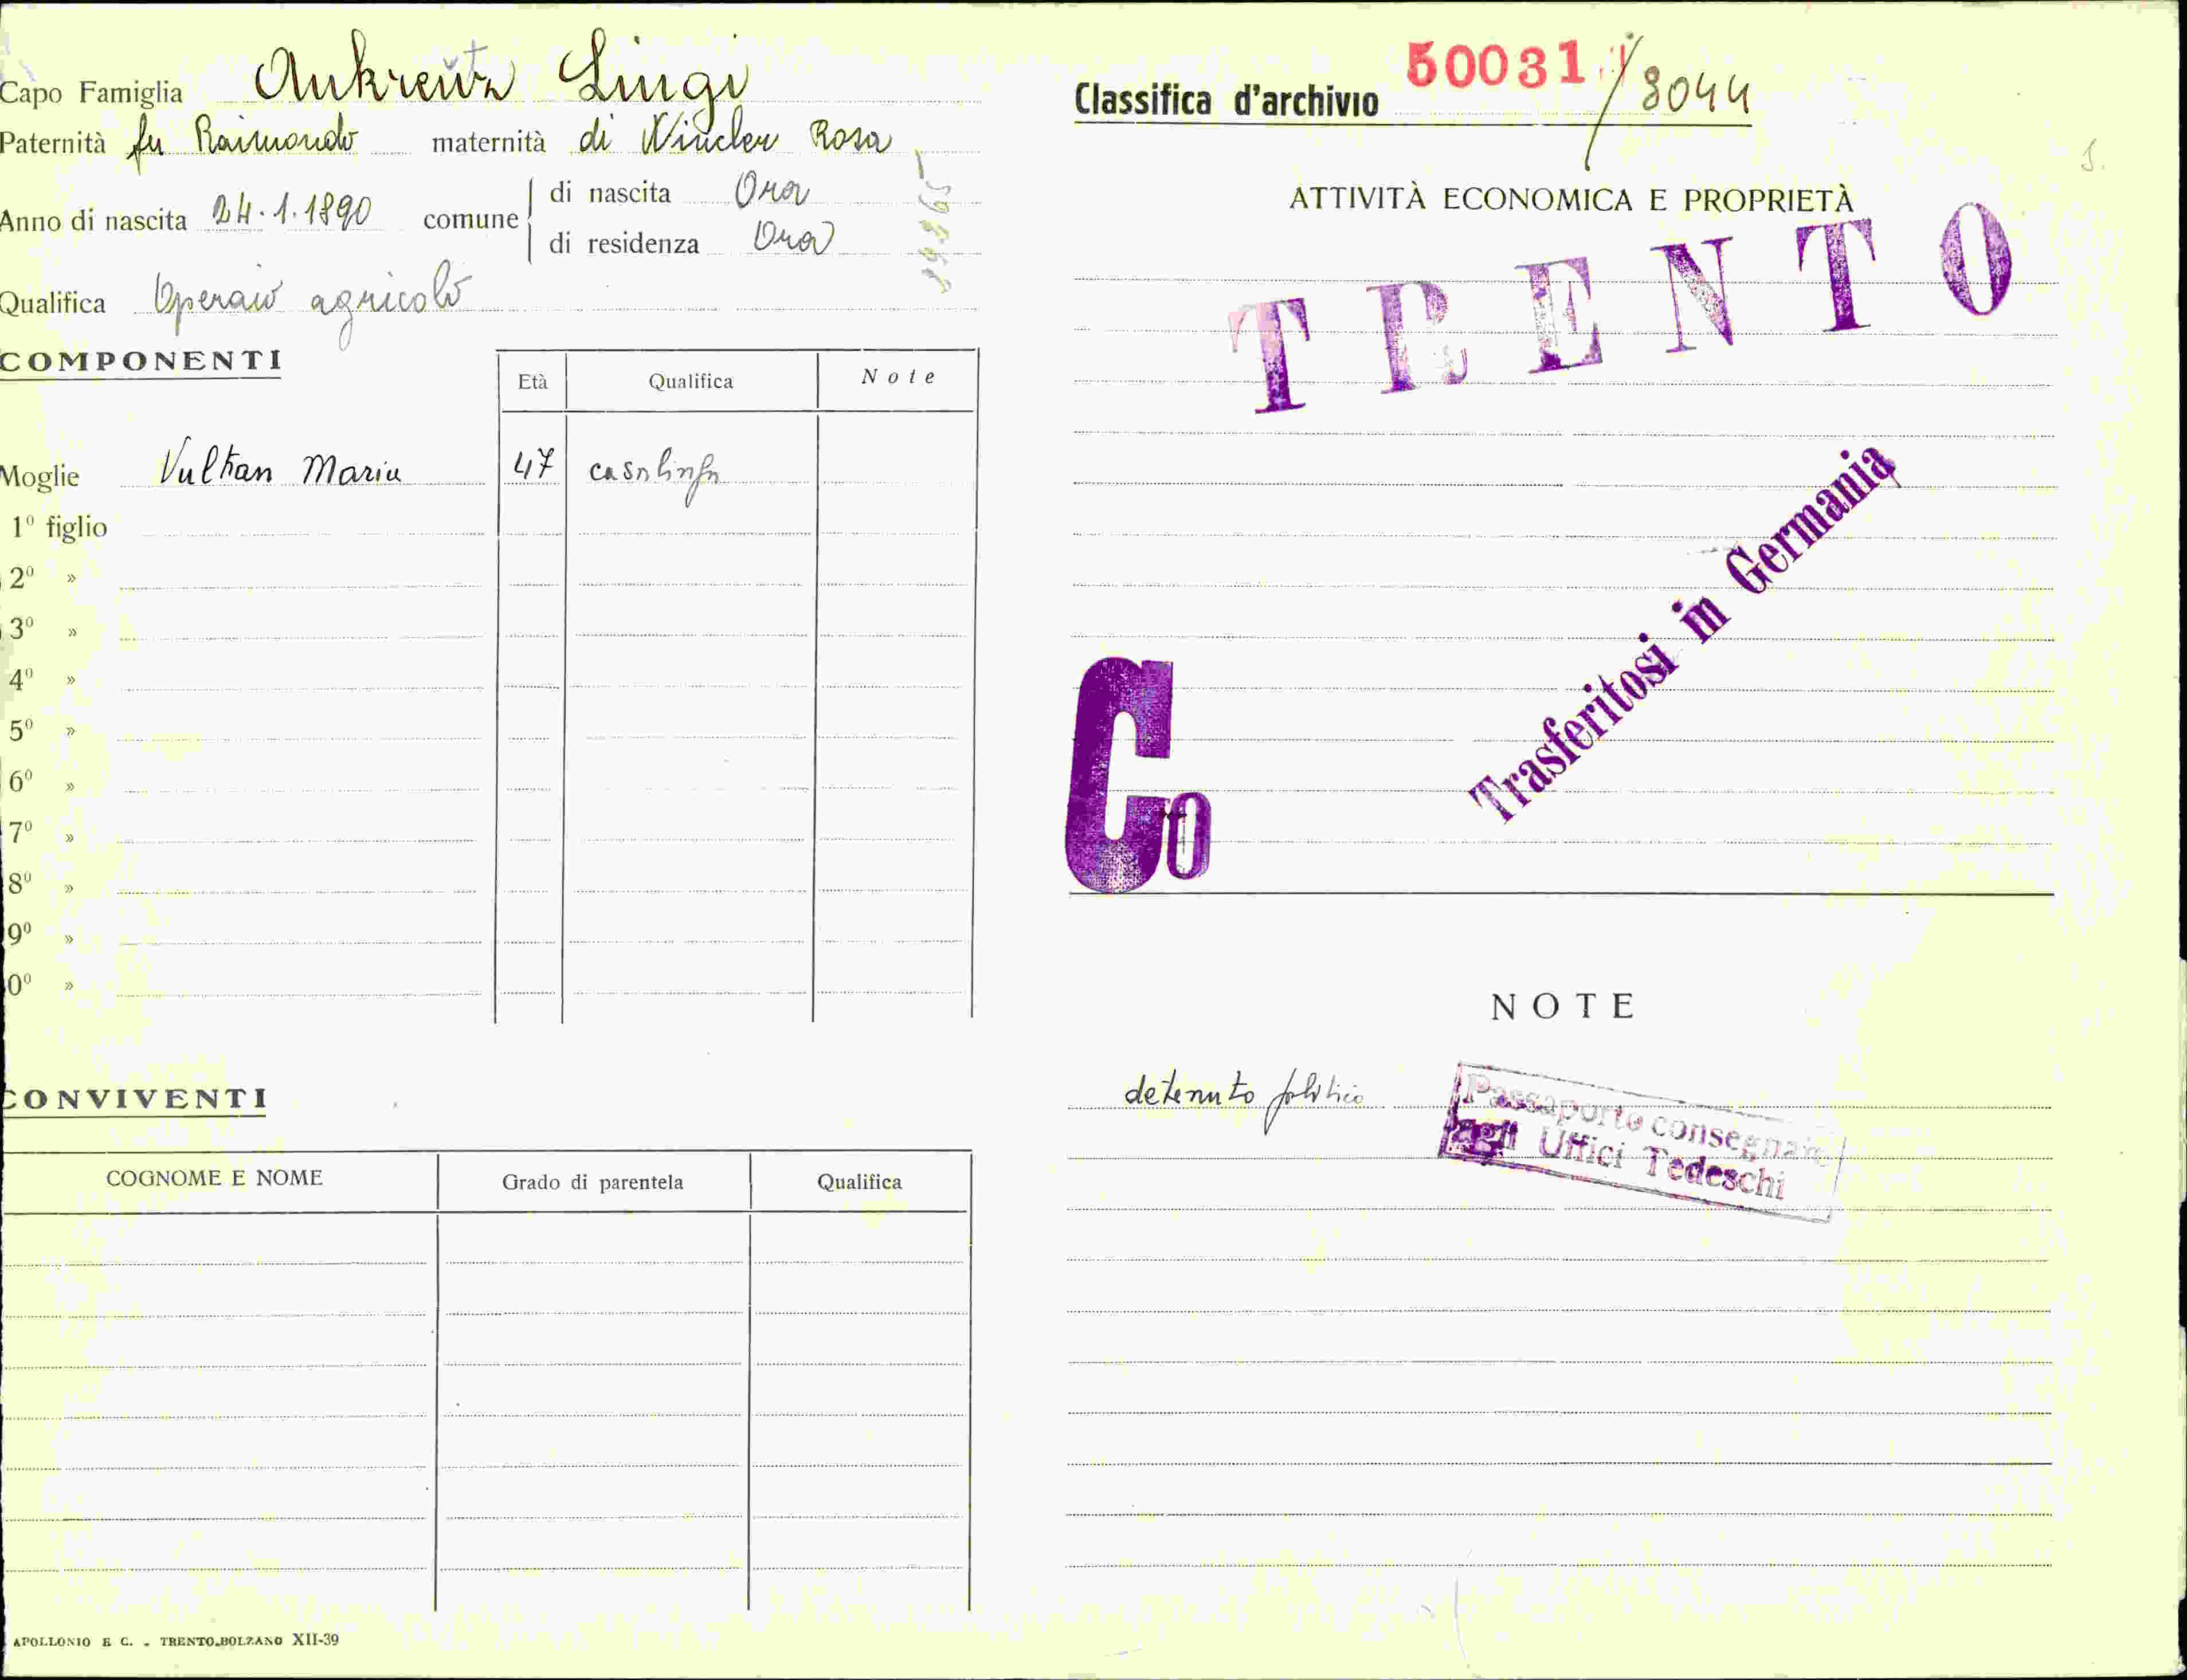 Capo Famiglia Ankreutz Luigi
Paternità fu Raimondo maternità di Wincler Rosa
Anno di nascita 24.1.1890 comune di nascita Ora
di residenza Ora
Qualifica Operaio agricolo
COMPONENTI
Età Qualifica Note
Moglie Vulkan Maria 47 casalinga
1º figlio
2º »
3º »
4º »
5º »
6º »
7º »
8º »
9º »
0º »
CONVIVENTI
COGNOME E NOME Grado di parentela Qualifica
APOLLONIO E C. - TRENTO-BOLZANO XII-39
Classifica d'archivio 50031 / 8044
ATTIVITÀ ECONOMICA E PROPRIETÀ
TRENTO
Trasferitosi in Germania
Co
NOTE
detenuto politico
Passaporto consegnato
agli Uffici Tedeschi